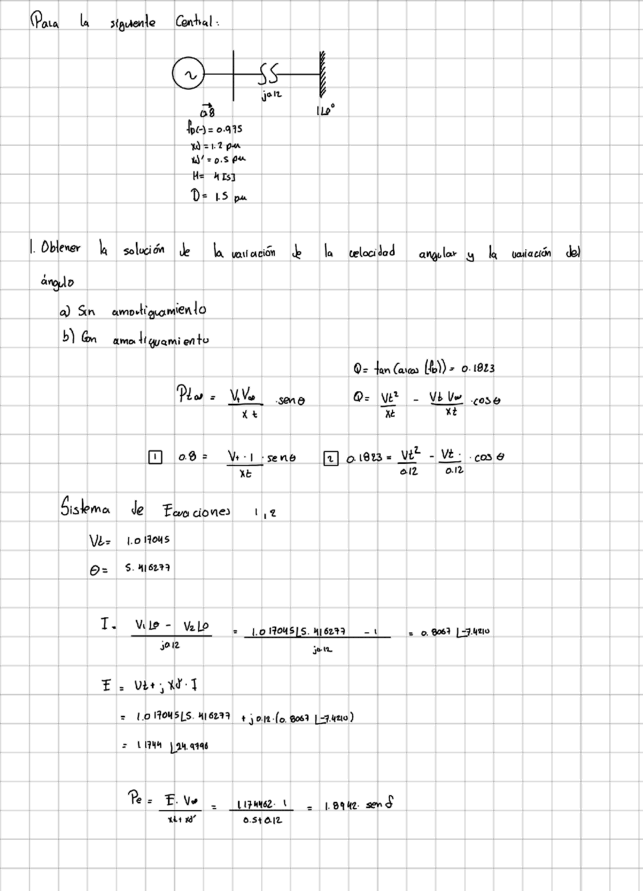 Para la siguiente Central:
~
j0.12
0.8
1∟0°
fp(-) = 0.975
xd = 1.2 pu
xd' = 0.5 pu
H = 4 [s]
D = 1.5 pu
1. Obtener la solución de la variación de la velocidad angular y la variación del
ángulo
a) Sin amortiguamiento
b) Con amortiguamiento
Q = tan(arcos (fp)) = 0.1823
Pt∞ = V1 V∞ / xt · sen θ
Q = Vt² / xt - Vt V∞ / xt · cos θ
1 0.8 = Vt · 1 / xt · sen θ
2 0.1823 = Vt² / 0.12 - Vt · / 0.12 · cos θ
Sistema de Ecuaciones 1,2
Vt = 1.017045
θ = 5.416277
I = V1∟θ - V2∟0 / j0.12 = 1.017045∟5.416277 - 1 / j0.12 = 0.8067∟-7.4210
E = Vt + j xd' · I
= 1.017045∟5.416277 + j0.12·(0.8067∟-7.4210)
= 1.1744∟24.9796
Pe = E · V∞ / xt + xd' = 1.174462 · 1 / 0.5+0.12 = 1.8942 · sen δ